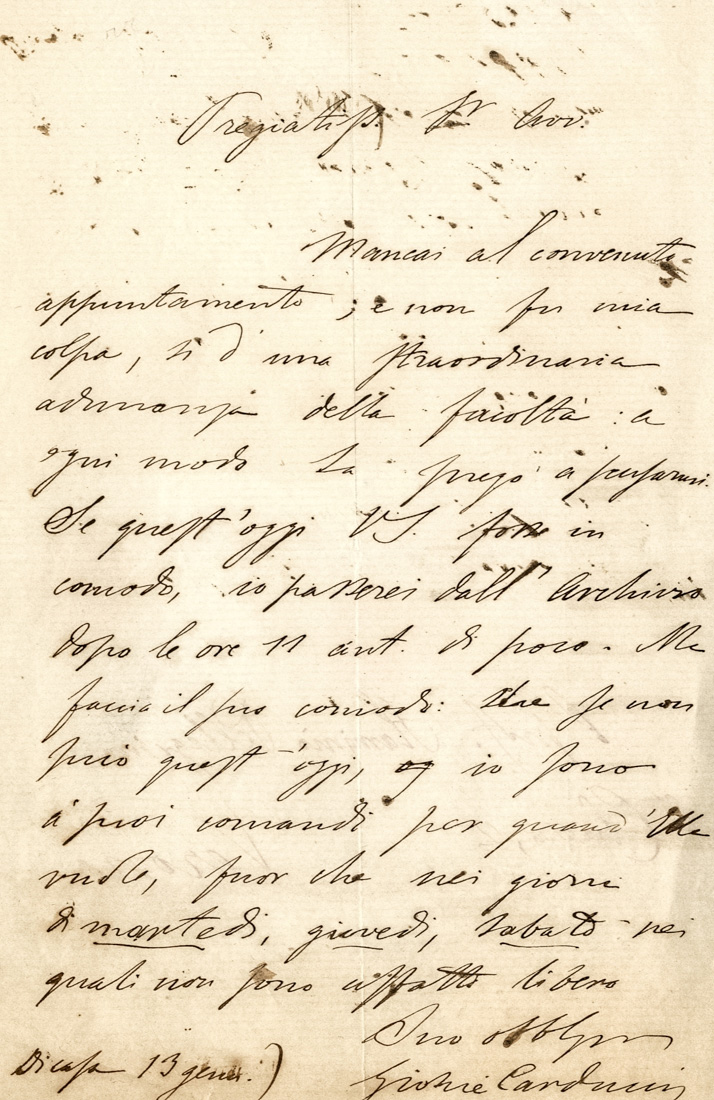 Pregiatiss. Sr Avv.
Mancai al convenuto
appuntamento ; e non fu mia
colpa, sì d'una straordinaria
adunanza della facoltà : a
ogni modo La prego a scusarmi.
Se quest'oggi V.S. fosse in
comodo, io passerei dall'Archivio
dopo le ore 11 ant. di poco. Ma
faccia il suo comodo: se non
può quest'oggi, io sono
a' suoi comandi per quand'Ella
vuole, fuor che nei giorni
di martedì, giovedì, sabato nei
quali non sono affatto libero
Suo obblgmo
Giosuè Carducci
Di casa 13 genn.)